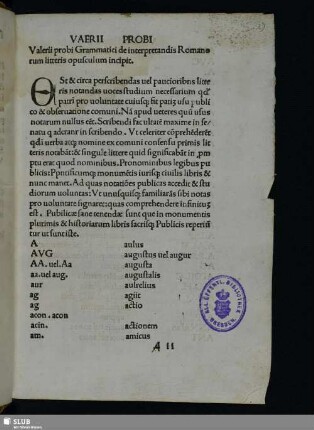 VAERII PROBI
Valerii probi Grammatici de interpretandis Romano
rum litteris opusculum incipit.
Est & circa perscribendas uel paucioribus litte
ris notandas uoces studium necessarium qđ
partī pro uoluntate cuiusq; fit partī usu publi
co & obseruatione comuni. Nā apud ueteres quū usus
notarum nullus eēt. Scribendi facultatē maxime in se
natu q aderāt in scribendo. Vt celeriter cōprehēderēt
qdā uerba atq; nomine ex comuni consensu primis lit
teris notabāt & singule littere quid significabāt in
ptu erat quod nominibus. Pronominibus legibus pu
blicis Pontificumq; monumētis iurisq; ciuilis libris &
nunc manet. Ad quas notatiōes publicas accedit & stu
diorum uoluntas: Vt unusquisq; familiarēs sibi notas
pro uoluntate signaret: quas comprehendere infinitū
est. Publicæ sane tenendæ sunt quæ in monumentis
plurimis & historiarum libris sacrisq; Publicis reperiūt
tur ut sunt iste.
A aulus
AVG augustus uel augur
AA. uel. Aa augusta
au. uel aug. augustalis
aur aurelius
ag agiit
ag actio
acon. acon
acin. actionem
am. amicus
A II
SLUB